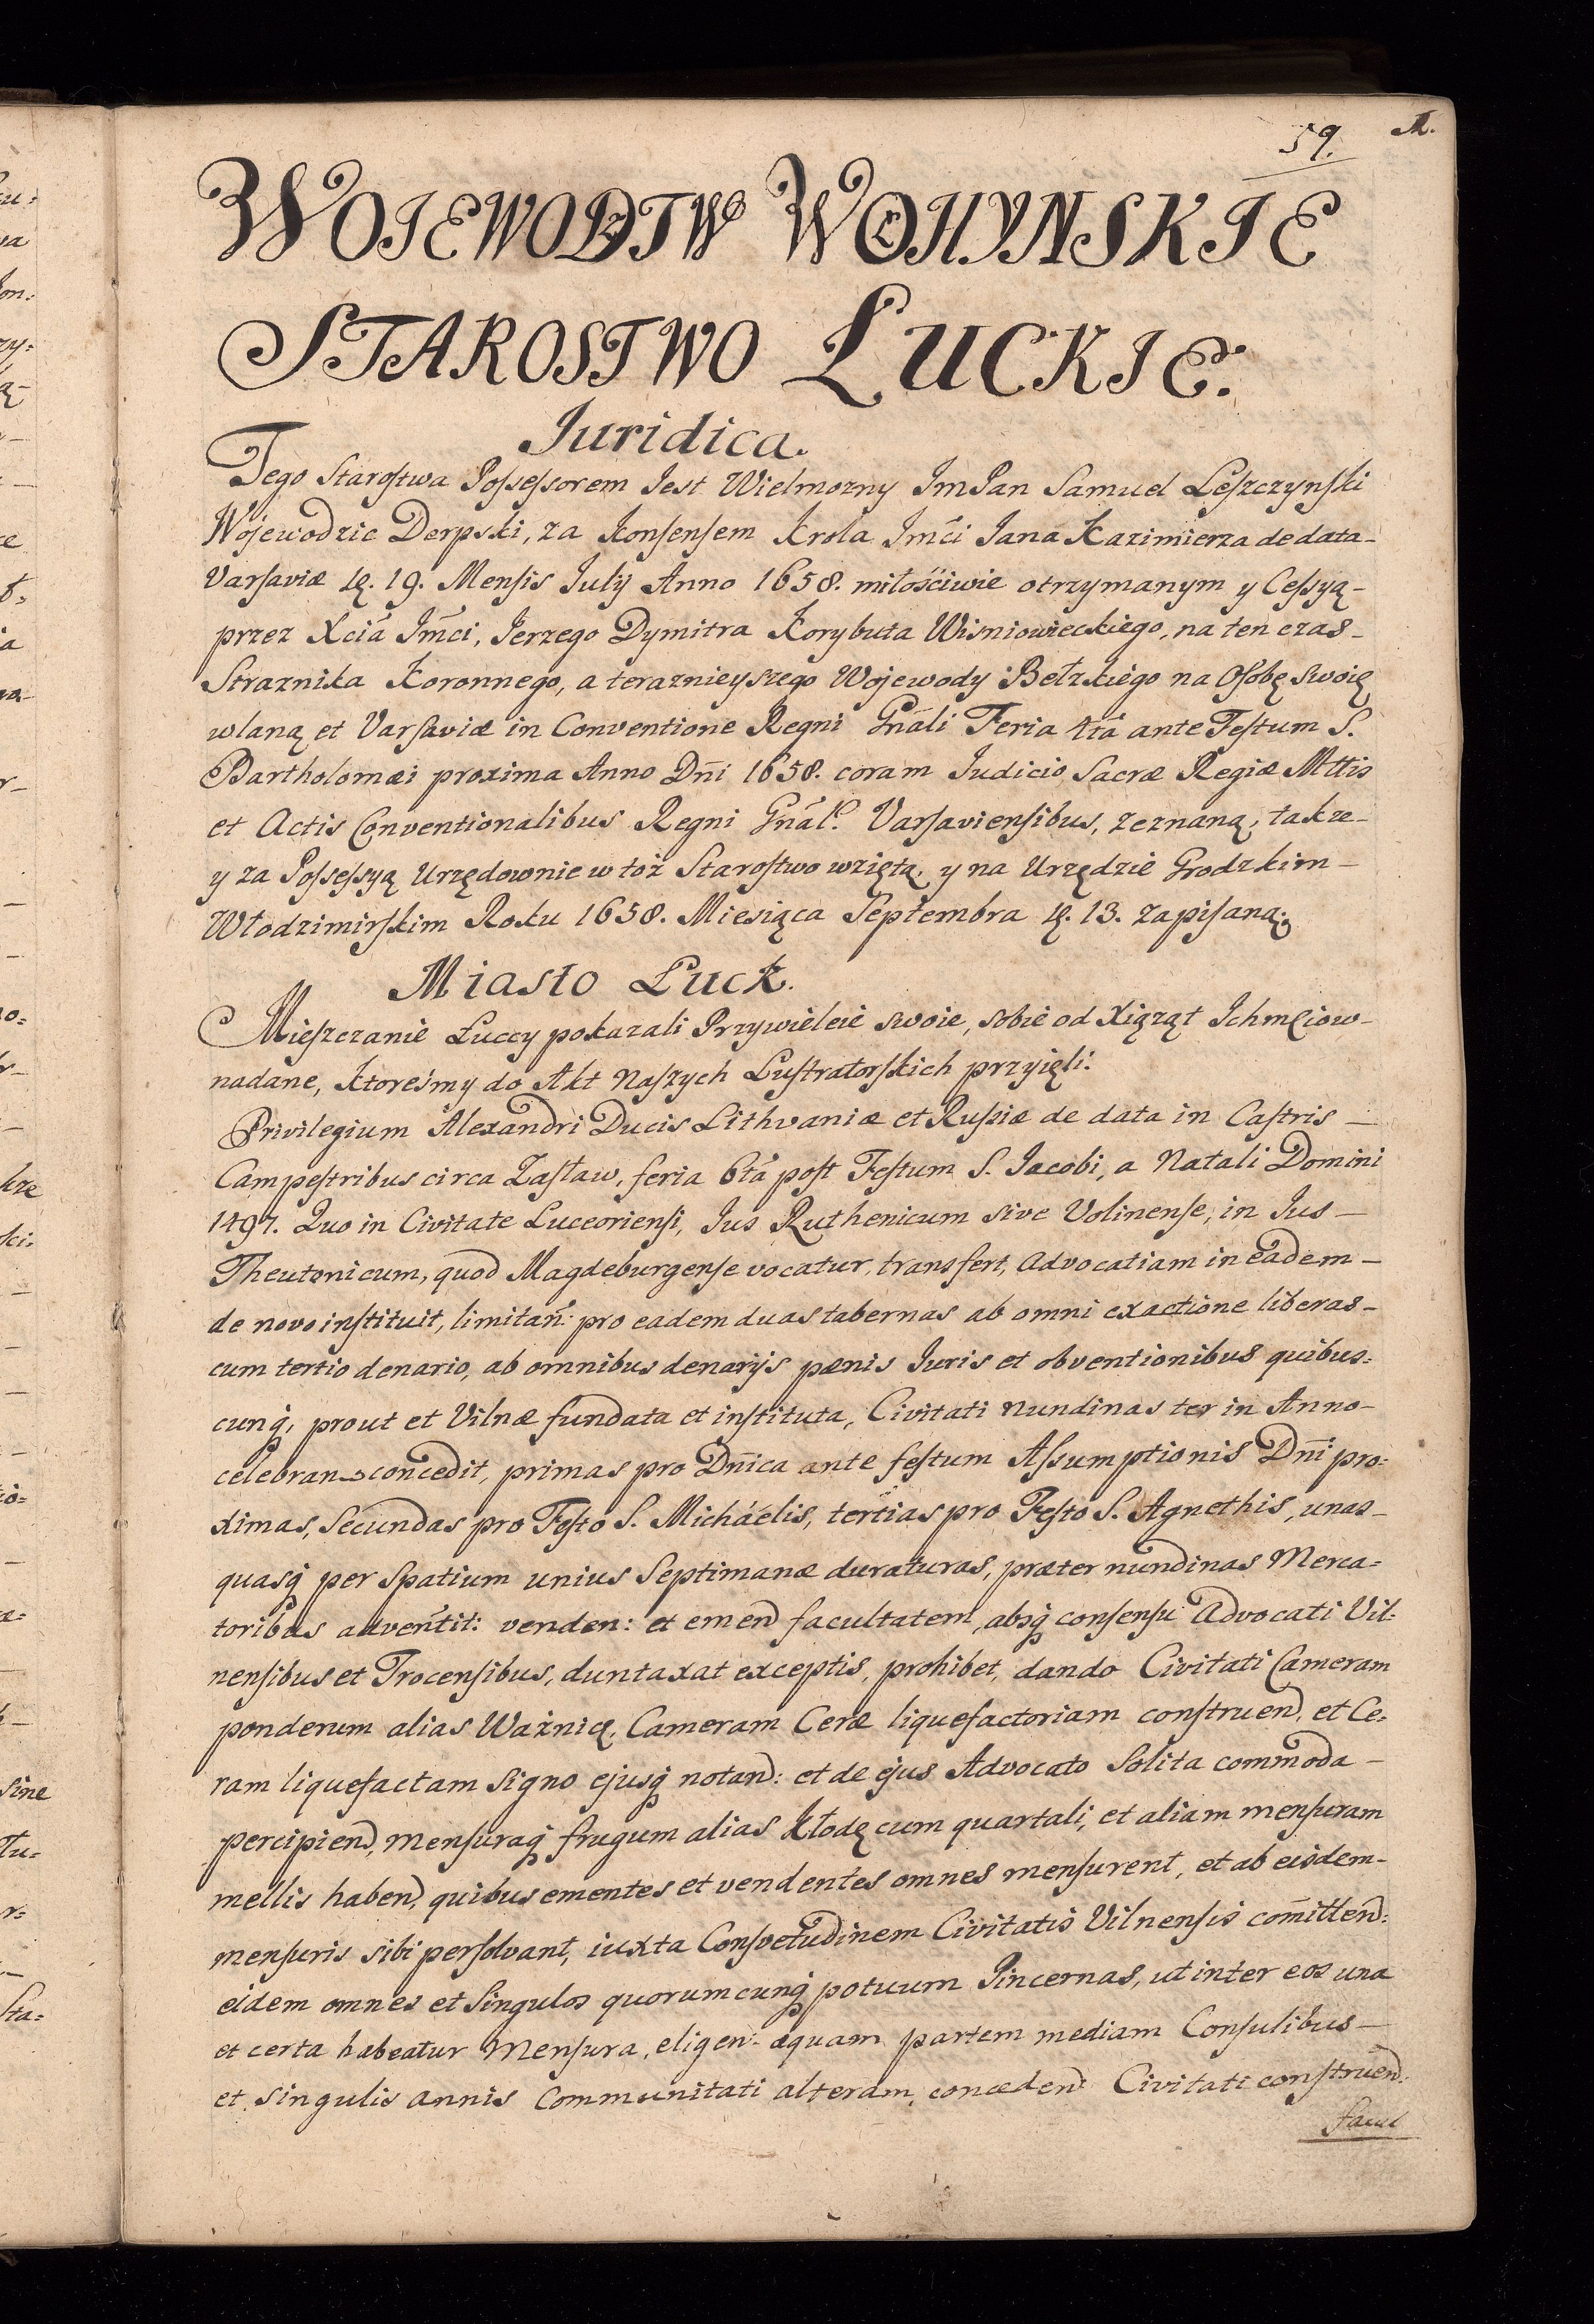 59. M.
WOJEWODZTWO WOŁHYNSKIE
STAROSTWO ŁUCKIE.
Iuridica.
Tego Starostwa Possessorem Iest Wielmozny ImPan Samuel Leszczynski
Wojewodzic Derpski, za Konsensem Krola Imći Iana Kazimierza de data
Varsaviæ 19. Mensis Julij Anno 1658. miłośćiwie otrzymanym y Cessyą
przez Xcia Imći, Ierzego Dymitra Korybuta Wisniowieckiego, na ten czas
Straznika Koronnego, a teraznieyszego Wojewody Bełzkiego na Osobę swoię
wlaną et Varsaviæ in Conventione Regni Gnāli Feria 4ta ante Festum S.
Bartholomæi proxima Anno Dn̄i 1658. coram Iudicio Sacræ Regiæ Mttis
et Actis Conventionalibus Regni Gnāl. Varsaviensibus, zeznaną, takze
y za Possessyą Urzędownie w toż Starostwo wziętą, y na Urzędzie Grodzkim
Włodzimirskim Roku 1658. Miesiąca Septembra 13. zapisaną.
Miasto Łuck.
Mieszczanie Łuccy pokazali Przywieleie swoie, sobie od Xiąząt Ichmciow
nadane, ktoreśmy do Akt Naszych Lustratorskich przyięli.
Privilegium Alexandri Ducis Lithvaniæ et Russiæ de data in Castris
Campestribus circa Zasław, feria 6ta post Festum S. Iacobi, a Natali Domini
1497. Quo in Civitate Luceoriensi, Ius Ruthenicum sive Volinense, in Ius
Theutonicum, quod Magdeburgense vocatur, transfert, Advocatiam in eadem
de novo instituit, limitan̄: pro eadem duas tabernas ab omni exactione liberas
cum tertio denario, ab omnibus denarijs pænis Iuris et obventionibus quibus=
cunq́, prout et Vilnæ fundata et instituta, Civitati nundinas ter in Anno
celebran concedit, primas pro Dn̄ica ante festum Assumptionis Dn̄i pro=
ximas, Secundas pro Festo S. Michaélis, tertias pro Festo S. Agnethis, unas
quasq́ per Spatium unius Septimanæ duraturas, præter nundinas Merca=
toribus adventit: venden: et emend facultatem, absq́ consensu Advocati Vil=
nensibus et Trocensibus, duntaxat exceptis, prohibet, dando Civitati Cameram
ponderum alias Ważnicę, Cameram Ceræ liquefactoriam construend, et Ce=
ram liquefactam Signo ejusq́ notand: et de ejus Advocato Solita commoda
percipiend, Mensuraq́ frugum alias Kłodę cum quartali, et aliam mensuram
mellis habend, quibus ementes et vendentes omnes mensurent, et ab eisdem
mensuris sibi persolvant, iuxta Consvetudinem Civitatis Vilnensis com̄ittend:
eidem omnes et Singulos quorumcunq́ potuum Pincernas, ut inter eos una
et certa habeatur Mensura, eligen: æquam partem mediam Consulibus
et singulis annis Communitati alteram, conceden: Civitati construend:
facul